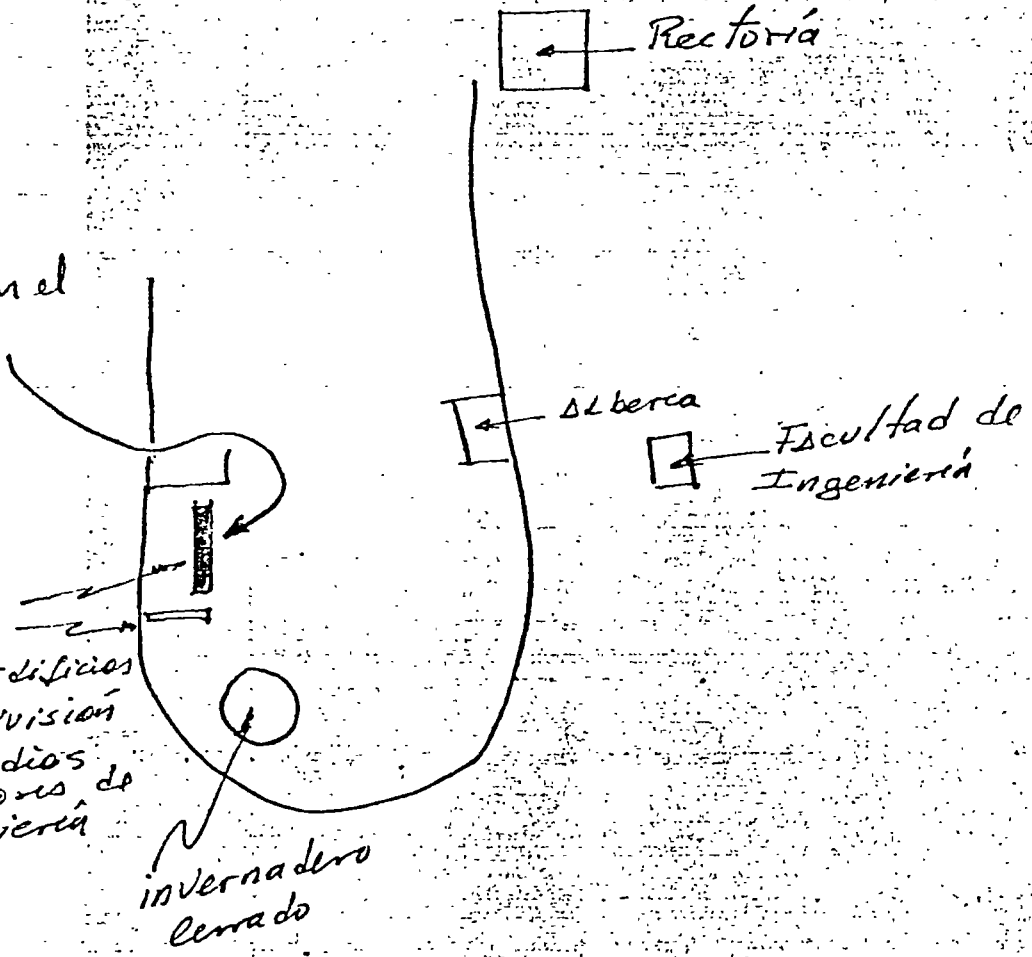 Rectoría
n el
Alberca
Facultad de
Ingeniería
dificios
visión
dios
ores de
iería
invernadero
cerrado